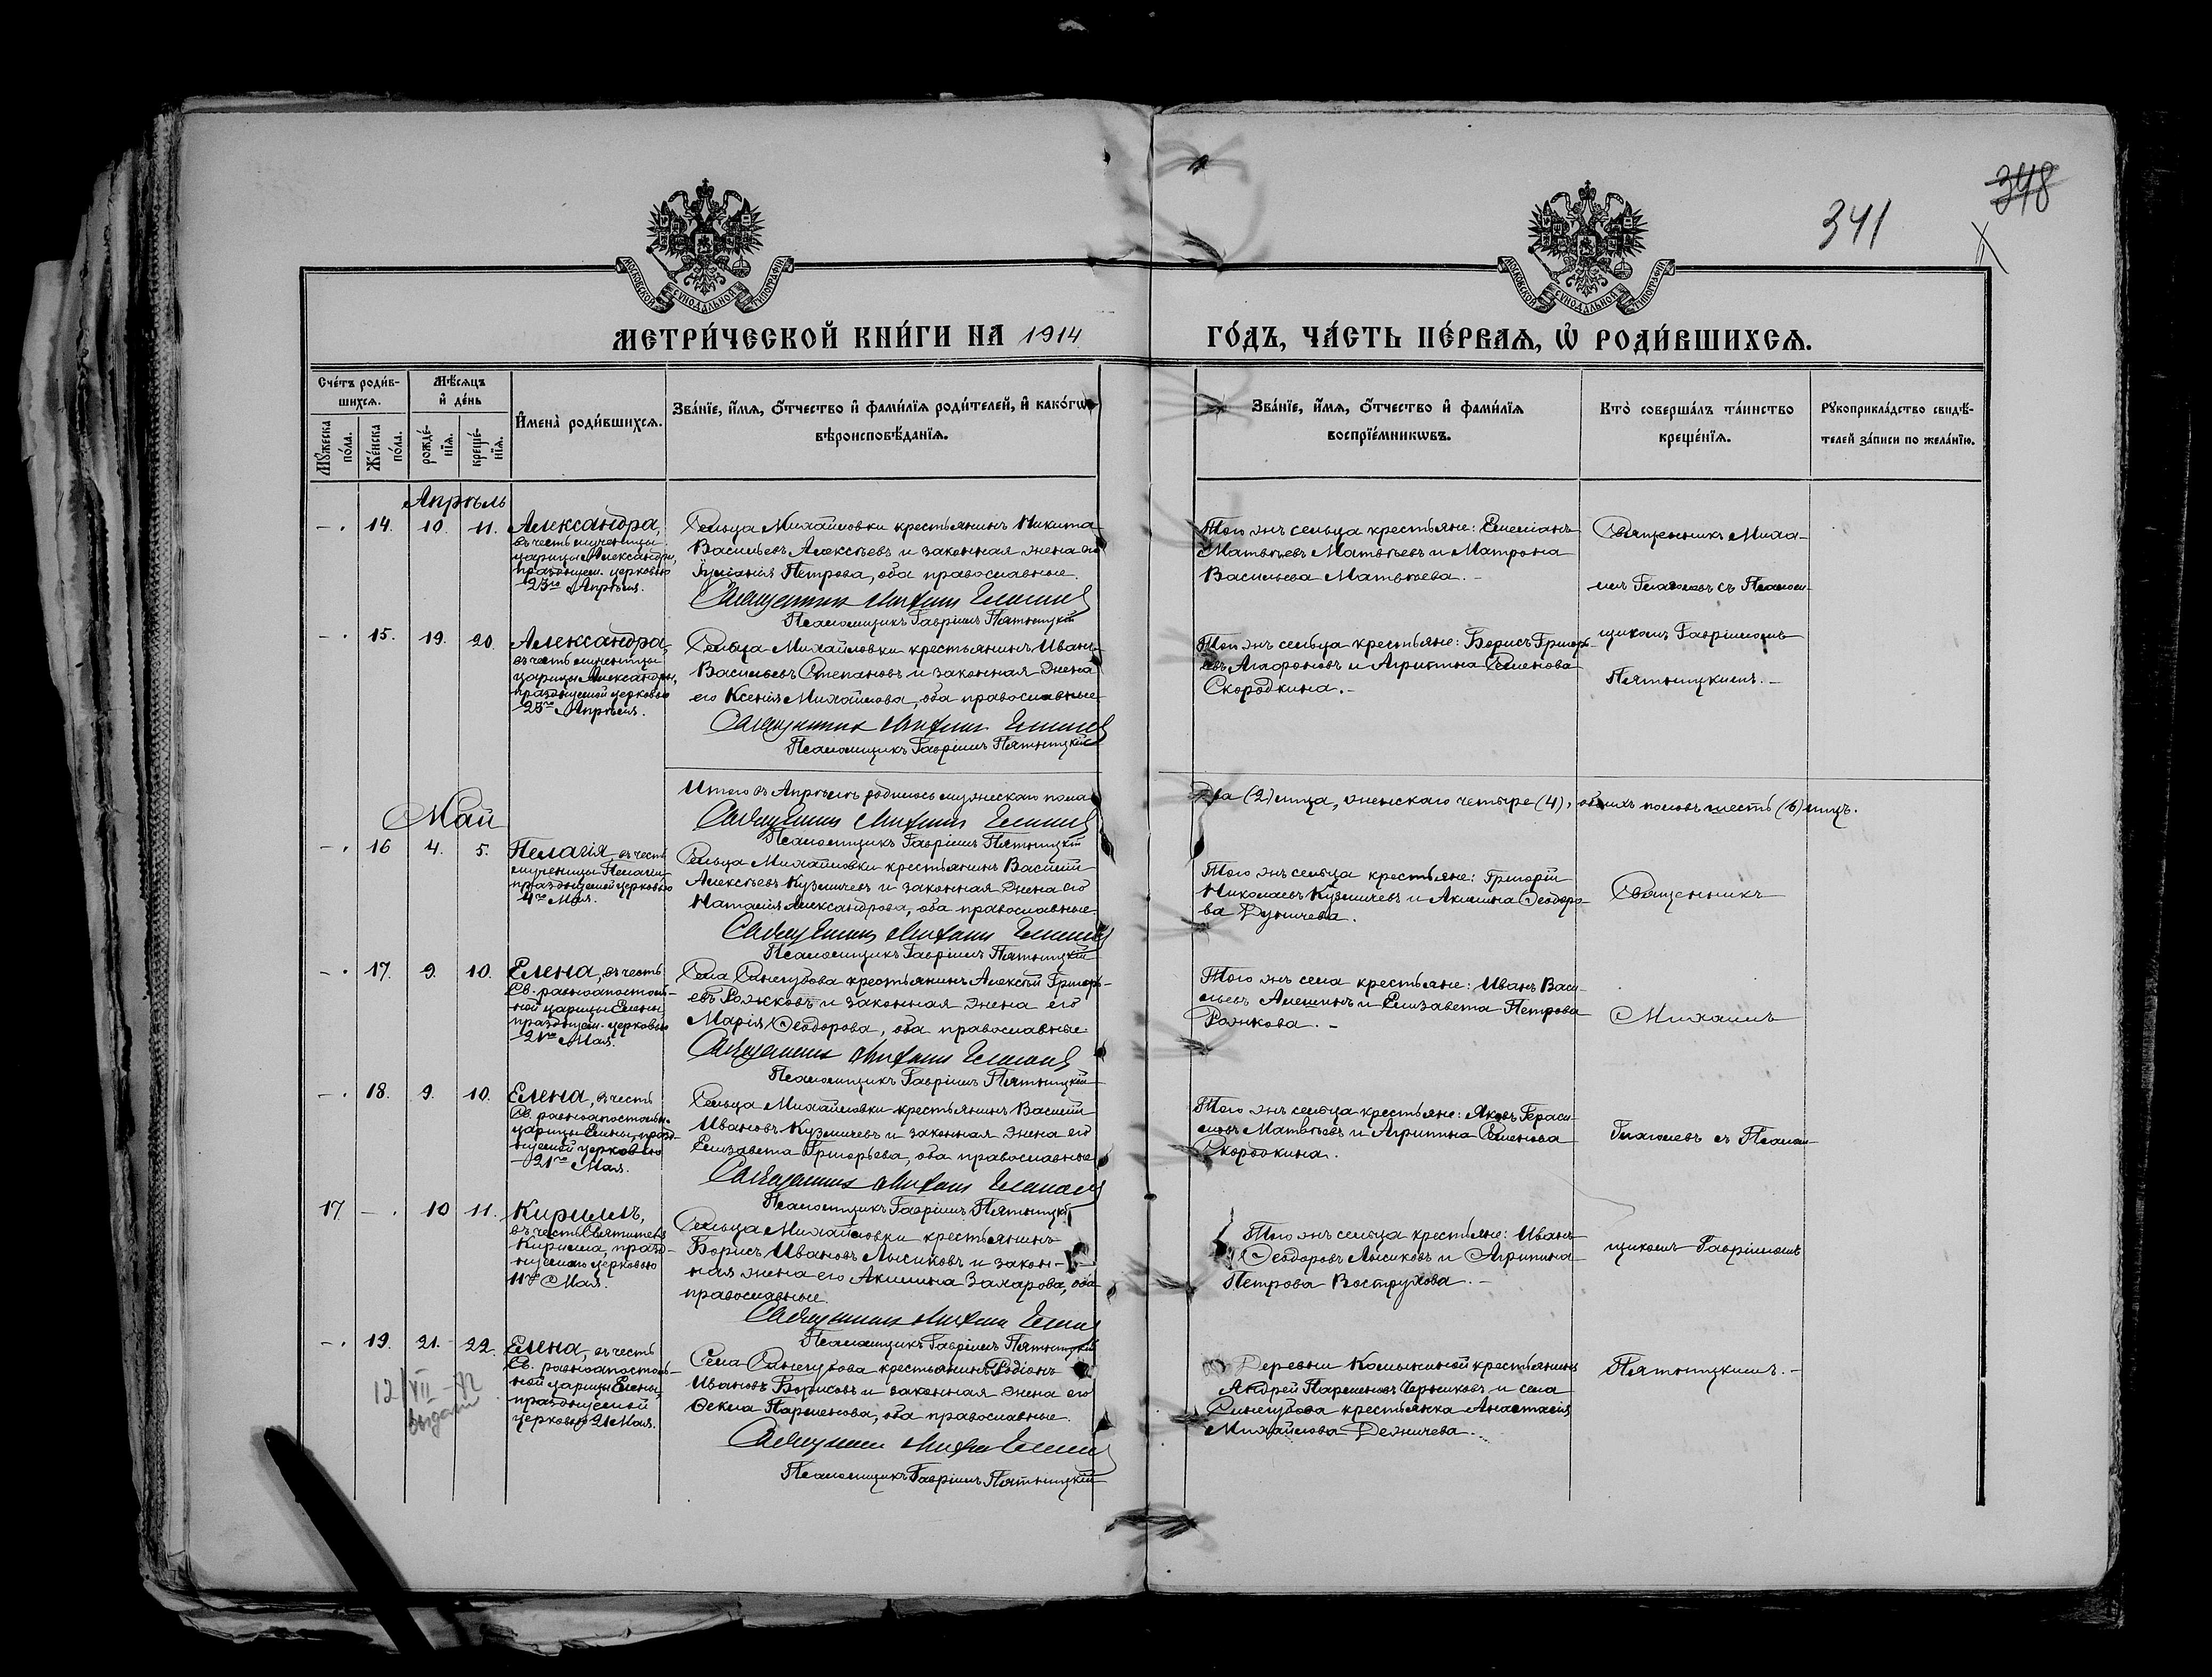 348
341
МОСКОВСКОЙ СѴНОДАЛЬНОЙ ТИПОГРАФІИ
МОСКОВСКОЙ СѴНОДАЛЬНОЙ ТИПОГРАФІИ
МЕТРИ́ЧЕСКОЙ КНИ́ГИ НА 1914 ГО́ДЪ, ЧА́СТЬ ПЕ́РВАѦ, Ѽ РОДИ́ВШИХСѦ.
Сче́тъ роди́в-
шихсѧ.
Мѣ́сѧцъ
и҆ де́нь
Мꙋ́жеска
по́ла.
Же́нска
по́ла.
рожде́-
нїѧ.
креще́-
нїѧ.
И҆мена̀ роди́вшихсѧ.
Зва́нїе, и҆́мѧ, ѻ҆́тчество и҆ фами́лїѧ роди́телей, и҆ како́гѡ
вѣроисповѣ́данїѧ.
Зва́нїе, и҆́мѧ, ѻ҆́тчество и҆ фами́лїѧ
воспрїе́мникѡвъ.
Кто̀ соверша́лъ та́инство
креще́нїѧ.
Рꙋкоприкла́дство свидѣ́-
телей за́писи по жела́нїю.
Апрѣль
-. 14. 10. 11. Александра
въ честь мученицы
царицы Александры,
празднуем. церковью
23го Апрѣля.
Сельца Михайловки крестьянинъ Никита
Васильевъ Алексѣевъ и законная жена его
Іуліанія Петрова, оба православные.
Священникъ Михаилъ
Псаломщикъ Гавріилъ Пятницкій
Того жъ сельца крестьяне: Емеліанъ
Матвѣевъ Матвѣевъ и Матрона
Васильева Матвѣева. -
Священникъ Миха-
илъ Глаголевъ съ Псалом-
щикомъ Гавріиломъ
Пятницкимъ. -
-. 15. 19. 20. Александра,
въ честь мученицы
царицы Александры,
празднуемой церковью
23го Апрѣля.
Сельца Михайловки крестьянинъ Иванъ
Васильевъ Степановъ и законная жена
его Ксенія Михайлова, оба православные
Священникъ Михаилъ
Псаломщикъ Гавріилъ Пятницкій
Того жъ сельца крестьяне: Борисъ Григорь-
евъ Агафоновъ и Агрипина Семенова
Скородкина. -
Итого въ Апрѣлѣ родилось мужескаго пола
два (2) лица, женскаго четыре (4), обоихъ половъ шесть (6) лицъ.
Священникъ Михаилъ
Псаломщикъ Гавріилъ Пятницкій
Май
-. 16 4. 5. Пелагія, въ честь
мученицы Пелагіи,
празднуемой церковью
4го Мая.
Сельца Михайловки крестьянинъ Василій
Алексѣевъ Кузмичевъ и законная жена его
Наталія Александрова, оба православные.
Священникъ Михаилъ
Псаломщикъ Гавріилъ Пятницкій
Того жъ сельца крестьяне: Григорій
Николаевъ Кузмичевъ и Акилина Ѳеодоро-
ва
Священникъ
-. 17. 9. 10. Елена, въ честь
Св. равноапостоль-
ной царицы Елены,
празднуем. церковью
21го Мая.
Села Синегубова крестьянинъ Алексѣй Григорь-
евъ Рожковъ и законная жена его
Марія Ѳеодорова, оба православные
Священникъ Михаилъ
Псаломщикъ Гавріилъ Пятницкій
Того жъ села крестьяне: Иванъ Васи-
льевъ Алешинъ и Елизавета Петрова
Рожкова. -
Михаилъ
-. 18. 9. 10. Елена, въ честь
Св. равноапостольн.
царицы Елены, празд-
нуемой церковью
21го Мая.
Сельца Михайловки крестьянинъ Василій
Ивановъ Кузмичевъ и законная жена его
Елизавета Григорьева, оба православные
Священникъ Михаилъ
Псаломщикъ Гавріилъ Пятницкій
Того жъ сельца крестьяне: Яковъ Гераси-
мовъ Матвѣевъ и Агрипина Семенова
Скородкина.
Глаголевъ съ Псалом-
17. -. 10 11. Кириллъ,
въ честь Святителя
Кирилла, празд-
нуемаго церковью
11го Мая.
Сельца Михайловки крестьянинъ
Борисъ Ивановъ Лысиковъ и закон-
ная жена его Акилина Захарова, оба
православные.
Священникъ Михаилъ
Псаломщикъ Гавріилъ Пятницкій
Того жъ сельца крестьяне: Иванъ
Ѳеодоровъ Лысиковъ и Агрипина
Петрова Вострухова. -
щикомъ Гавріиломъ
-. 19. 21. 22. Елена, въ честь
Св. равноапостоль-
ной царицы Елены,
празднуемой
церковью 21 Мая.
12/VII-72
выдано
Села Синегубова крестьянинъ Родіонъ
Ивановъ Борисовъ и законная жена его
Ѳекла Парменова, оба православные.
Священникъ Михаилъ
Псаломщикъ Гавріилъ Пятницкій
Деревни крестьянинъ
Андрей Парменовъ и села
Синегубова крестьянка Анастасія
Михайлова
Пятницкимъ. -